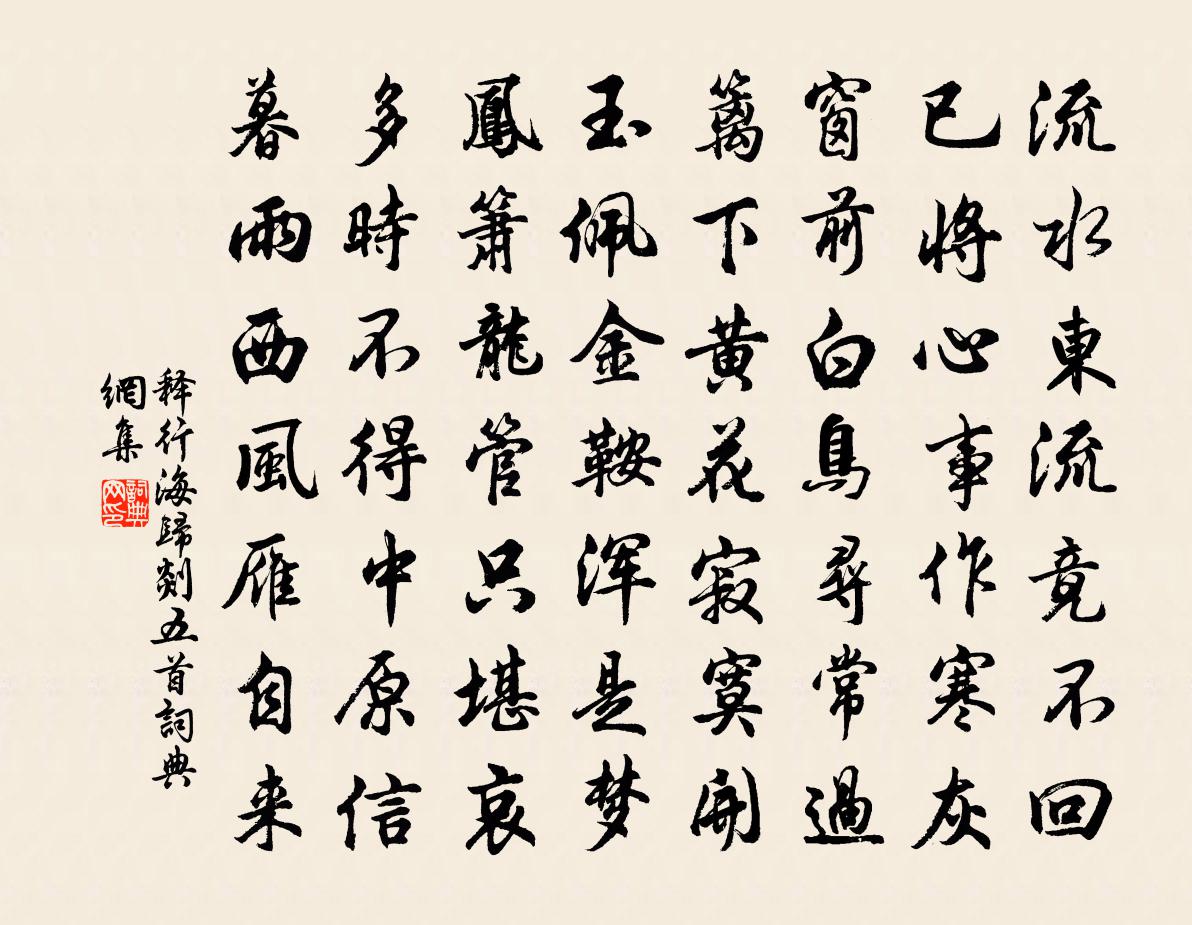 流水東流竟不回
已將心事作寒灰
窗前白鳥尋常過
籬下黄花寂寞開
玉佩金鞍浑是梦
鳳簫龍管只堪哀
多時不得中原信
暮雨西風雁自来
释行海歸剡五首詞典
網集
詞典
网印